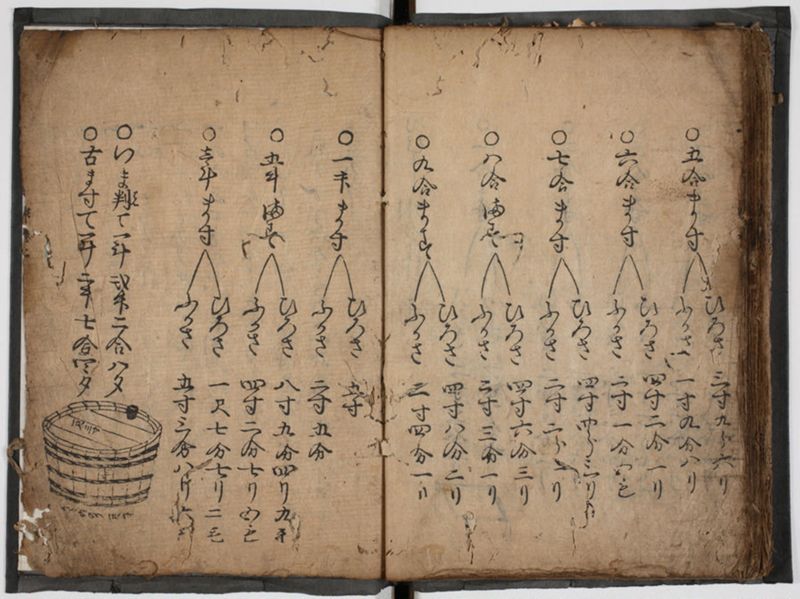 ○五合ます
ひろさ 三寸九分六リ
ふかさ 一寸九分八リ
○六合ます
ひろさ 四寸二分一リ
ふかさ 二寸一分五毛
○七合ます
ひろさ 四寸四分三リ
ふかさ 二寸二分二リ
○八合満す
ひろさ 四寸六分三リ
ふかさ 二寸三分一リ
○九合ます
ひろさ 四寸八分二リ
ふかさ 二寸四分一リ
○一升ます
ひろさ 五寸
ふかさ 二寸五分
○五升満す
ひろさ 八寸五分四リ九毛
ふかさ 四寸二分七リ五毛
○壱斗ます
ひろさ 一尺七分七リ二毛
ふかさ 五寸三分八リ六毛
○いま判て一斗弐升二合八夕
○古ますて一斗二升七合四夕